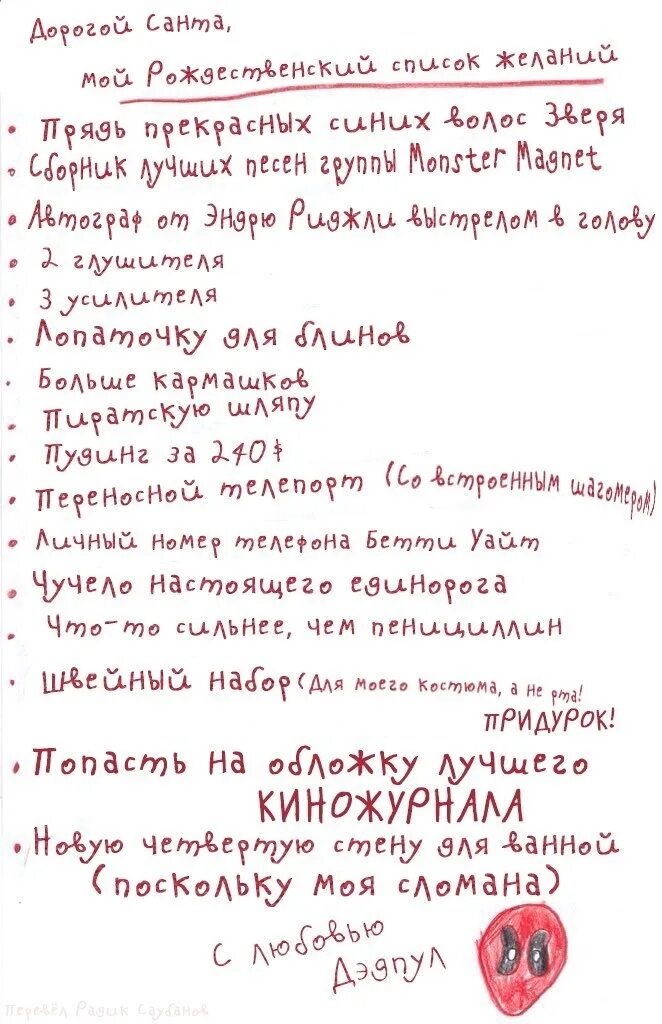 Дорогой Санта,
мой Рождественский список желаний
• Прядь прекрасных синих волос Зверя
• Сборник лучших песен группы Monster Magnet
• Автограф от Эндрю Риджли выстрелом в голову
• 2 глушителя
• 3 усилителя
• Лопаточку для блинов
• Больше кармашков
• Пиратскую шляпу
• Пудинг за 240$
• Переносной телепорт (Со встроенным шагомером)
• Личный номер телефона Бетти Уайт
• Чучело настоящего единорога
• Что-то сильнее, чем пенициллин
• Швейный набор (Для моего костюма, а не рта!
ПРИДУРОК!
• Попасть на обложку лучшего
КИНОЖУРНАЛА
• Новую четвертую стену для ванной
(поскольку моя сломана)
С любовью
Дэдпул
Перевёл Радик Саубанов